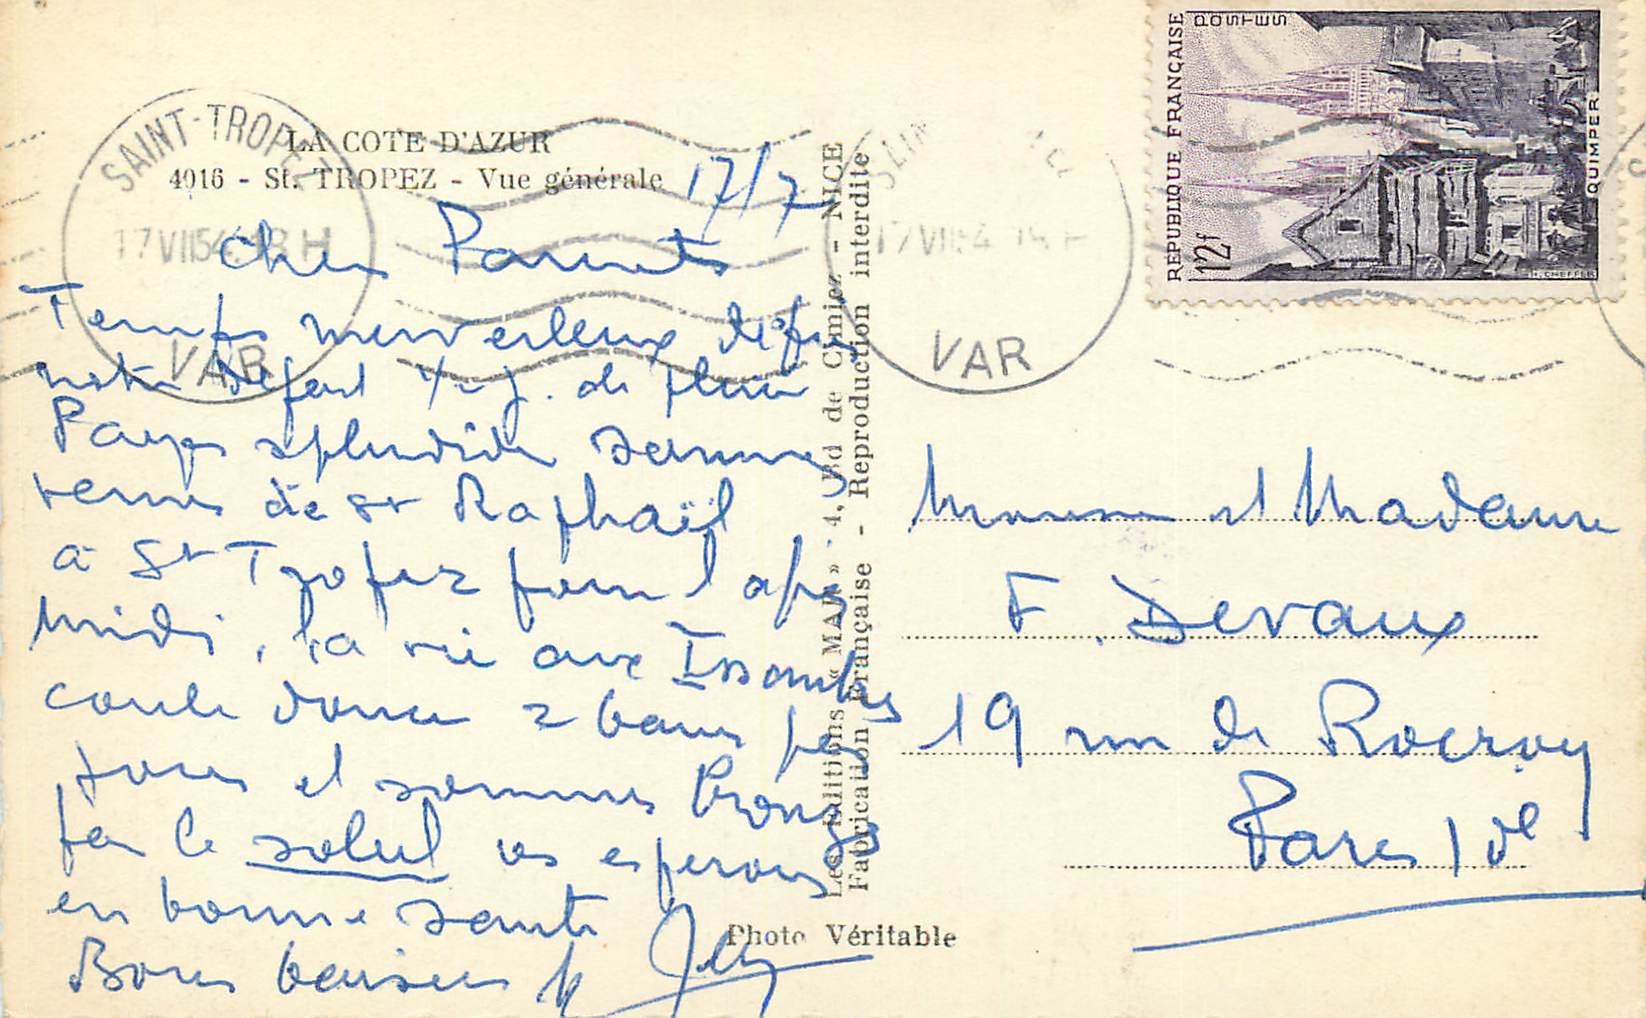 LA COTE D'AZUR
4016 - St. TROPEZ - Vue générale
17/7
SAINT-TROPEZ
17 VII 54 18 H
VAR
Chers Parents
Temps merveilleux depuis
notre départ 1/2 j. de pluie
Pays splendide sommes
venus de St Raphaël
à St Tropez pour l'après
midi, la vie aux Issambres
coule douce 2 bains par
jours et sommes bronzés
par le soleil vs espérons
en bonne santé
Bons baisers
Les Editions « MAR » - 4, Bd de Cimiez - NICE
Fabrication Française - Reproduction interdite
Photo Véritable
REPUBLIQUE FRANÇAISE
POSTES
12f
QUIMPER
H. CHEFFER
17 VII 54
VAR
Monsieur et Madame
F. Devaux
19 rue de Rocroy
Paris 10e